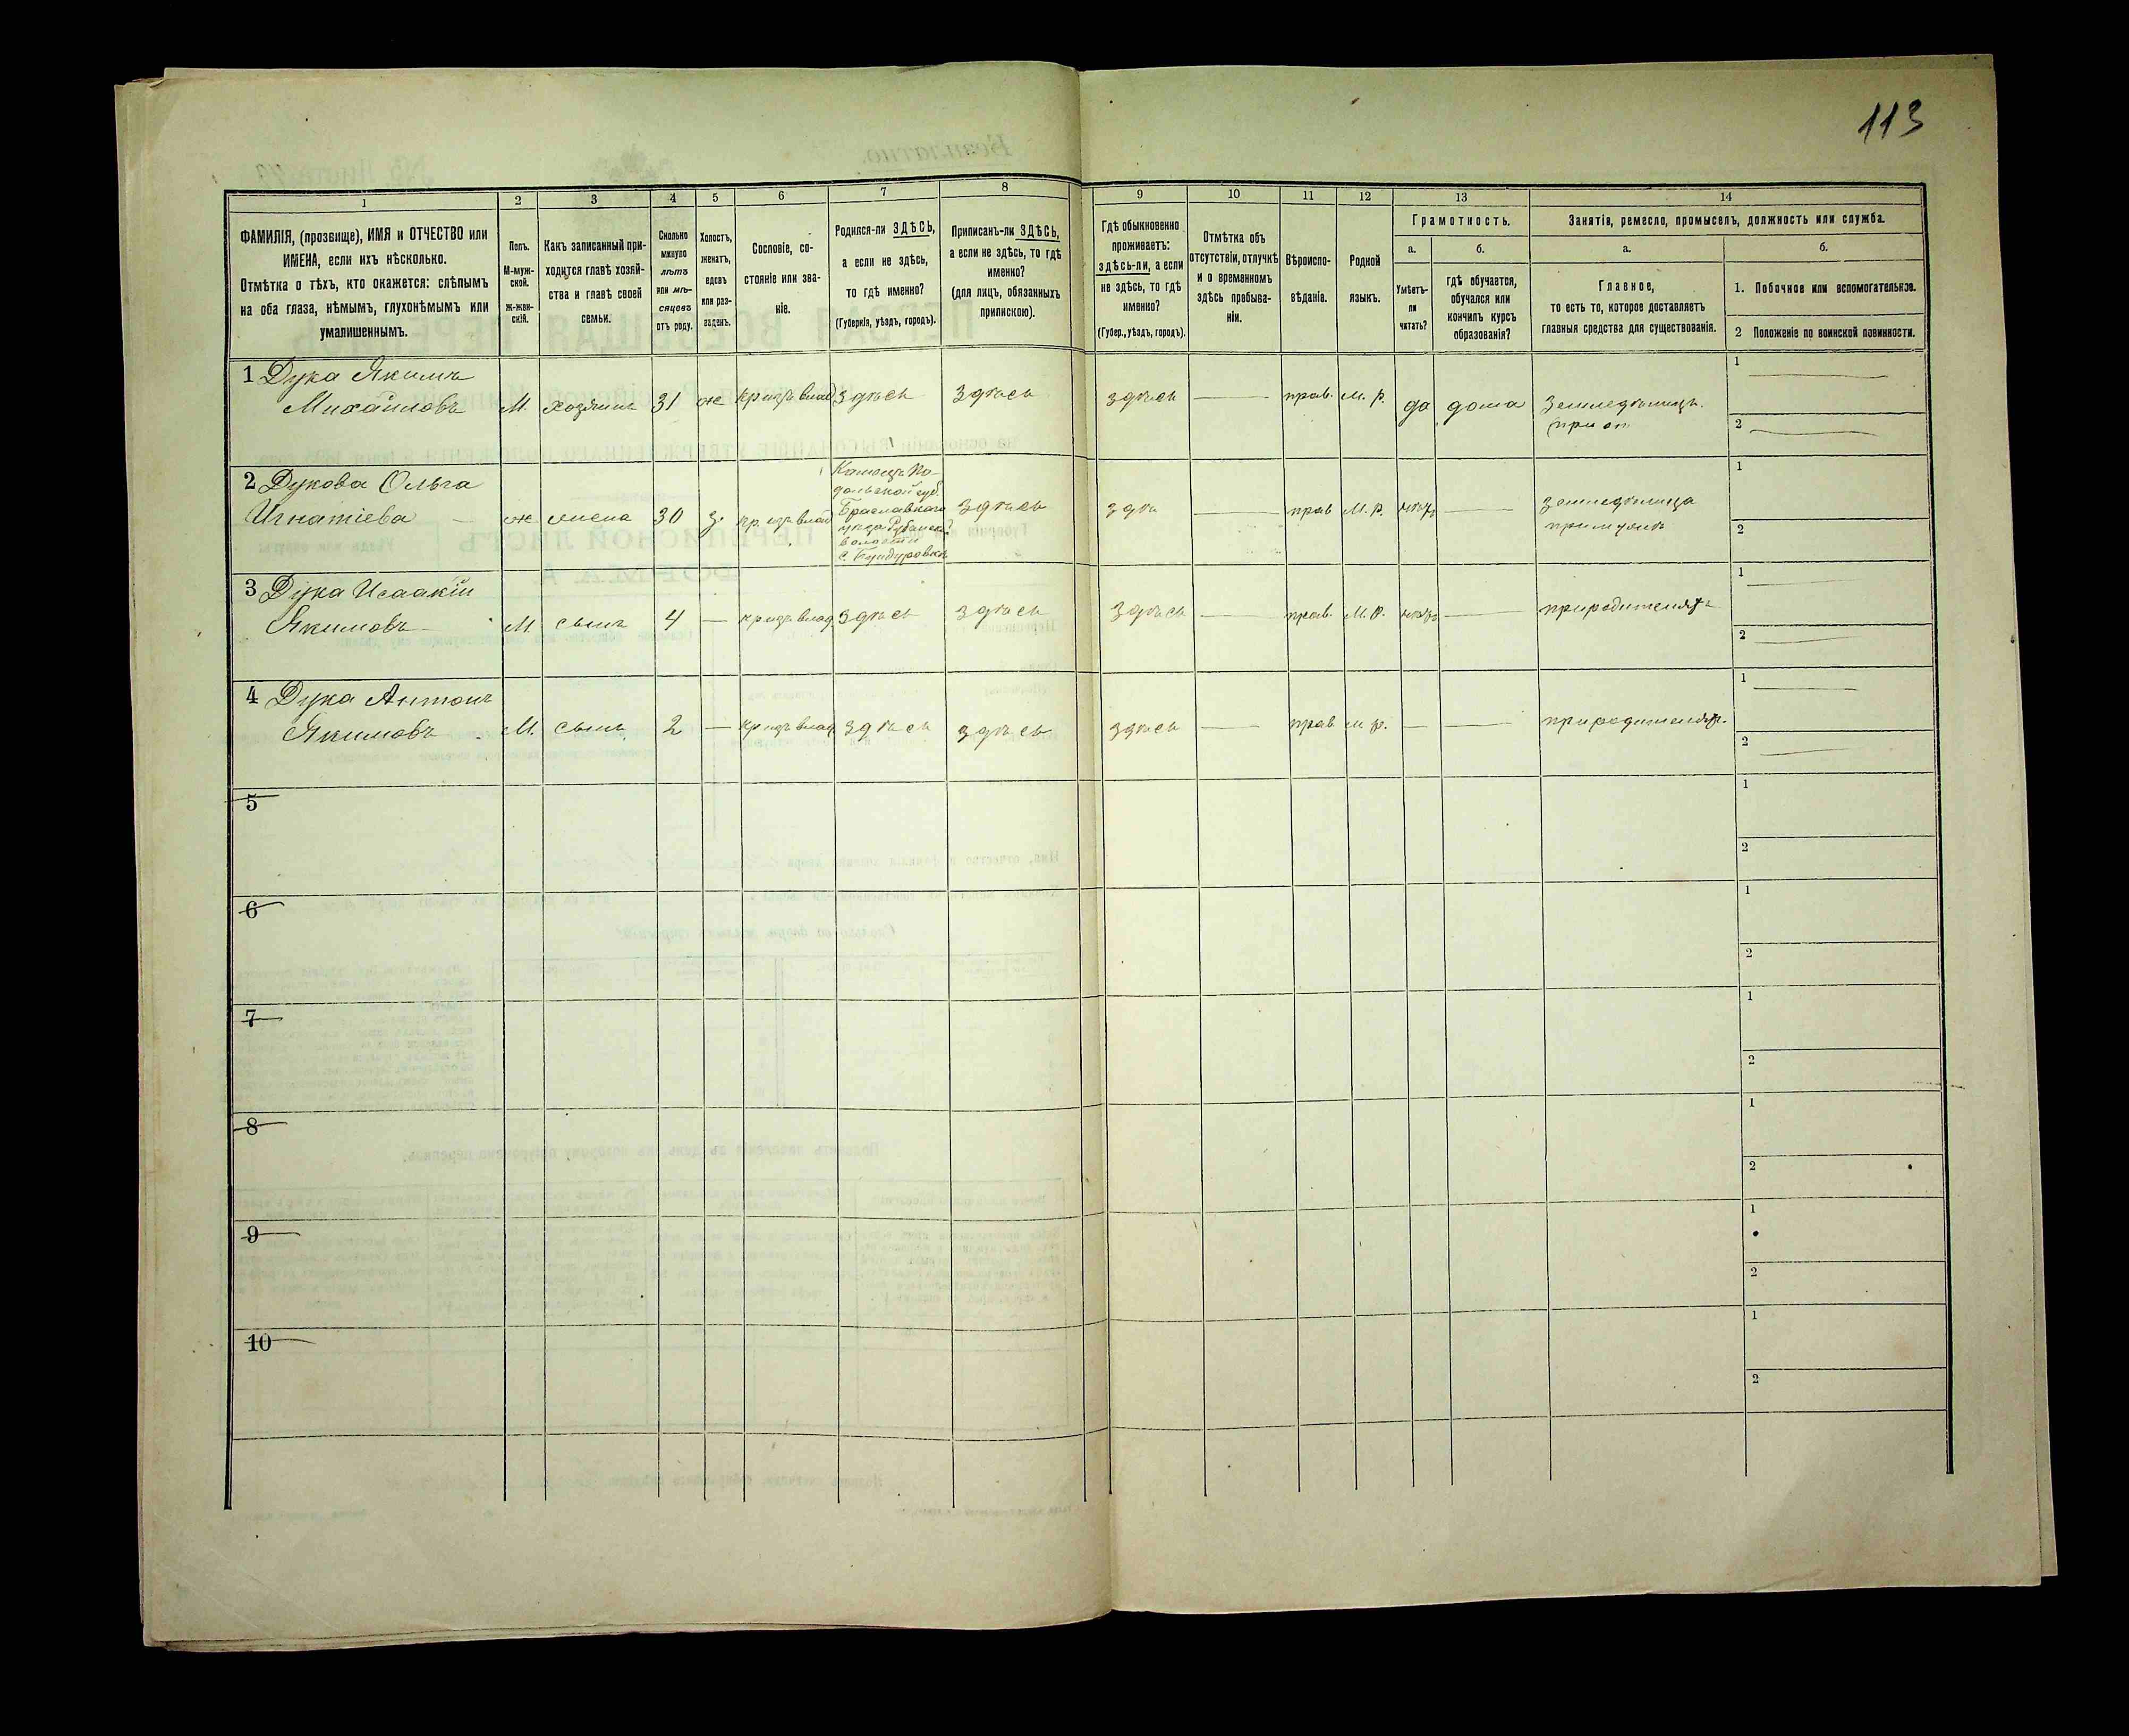 113
1
2
3
4
5
6
7
8
9
10
11
12
13
14
ФАМИЛІЯ, (прозвище), ИМЯ и ОТЧЕСТВО или
ИМЕНА, если ихъ нѣсколько.
Отмѣтка о тѣхъ, кто окажется: слѣпымъ
на оба глаза, нѣмымъ, глухонѣмымъ или
умалишеннымъ.
Полъ.
М-муж-
ской.
Ж-жен-
скій.
Какъ записанный при-
ходится главѣ хозяй-
ства и главѣ своей
семьи.
Сколько
минуло
лѣтъ
или мѣ-
сяцевъ
отъ роду.
Холостъ,
женатъ,
вдовъ
или раз-
веденъ.
Сословіе, со-
стояніе или зва-
ніе.
Родился-ли ЗДѢСЬ,
а если не здѣсь,
то гдѣ именно?
(Губернія, уѣздъ, городъ).
Приписанъ-ли ЗДѢСЬ,
а если не здѣсь, то гдѣ
именно?
(для лицъ, обязанныхъ
припискою).
Гдѣ обыкновенно
проживаетъ:
здѣсь-ли, а если
не здѣсь, то гдѣ
именно?
(Губер., уѣздъ, городъ).
Отмѣтка объ
отсутствіи, отлучкѣ
и о временномъ
здѣсь пребыва-
ніи.
Вѣроиспо-
вѣданіе.
Родной
языкъ.
Грамотность.
а.
б.
Умѣетъ-
ли
читать?
гдѣ обучается,
обучался или
кончилъ курсъ
образованія?
Занятія, ремесло, промыселъ, должность или служба.
а.
б.
Главное,
то есть то, которое доставляетъ
главныя средства для существованія.
1. Побочное или вспомогательное.
2 Положеніе по воинской повинности.
1 Дука Якимъ
Михайловъ М. хозяинъ 31 ж кр изъ влад здѣсь здѣсь здѣсь — прав. м. р. да дома Земледѣлецъ.
1
2
2 Дукова Ольга
Игнатіева — ж жена 30 з. кр. изъ влад
дольской губ.
Брацлавского
волости
здѣсь здѣ — прав М. р. нѣтъ — земледѣлица
при мужѣ
1
2
3 Дука Исаакій
Якимовъ М. сынъ 4 — кр изъ влад здѣсь здѣсь здѣсь — прав. М. р. нѣтъ — при родителяхъ
1
2
4 Дука Антонъ
Якимовъ М. сынъ 2 — кр изъ влад здѣсь здѣсь здѣсь — прав м р. — — при родителях.
1
2
5
1
2
6
1
2
7
1
2
8
1
2
9
1
2
10
1
2